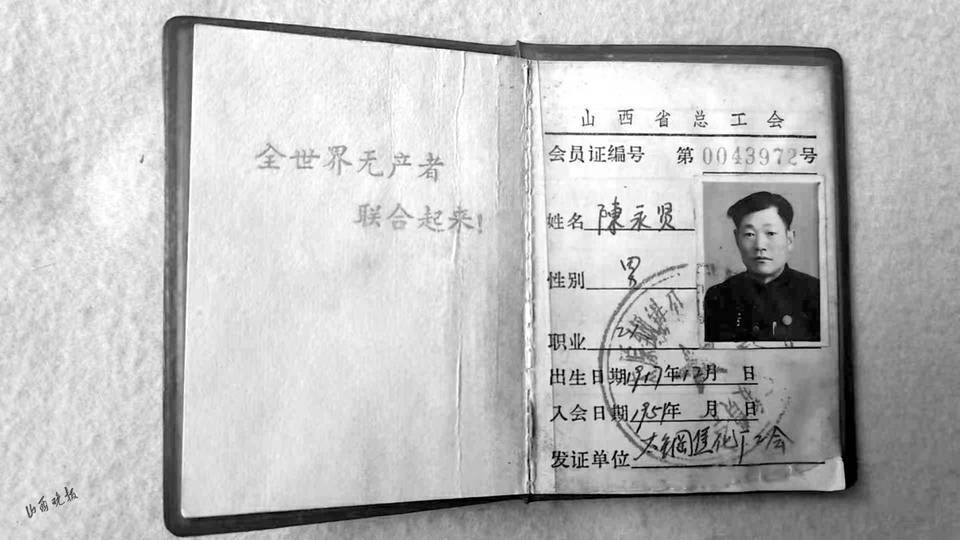 全世界无产者
联合起来!
山西省总工会
会员证编号 第0043972号
姓名 陳永贤
性别 男
职业
出生日期1917年12月 日
入会日期1951年 月 日
发证单位太钢焦化厂工会
山西晚报